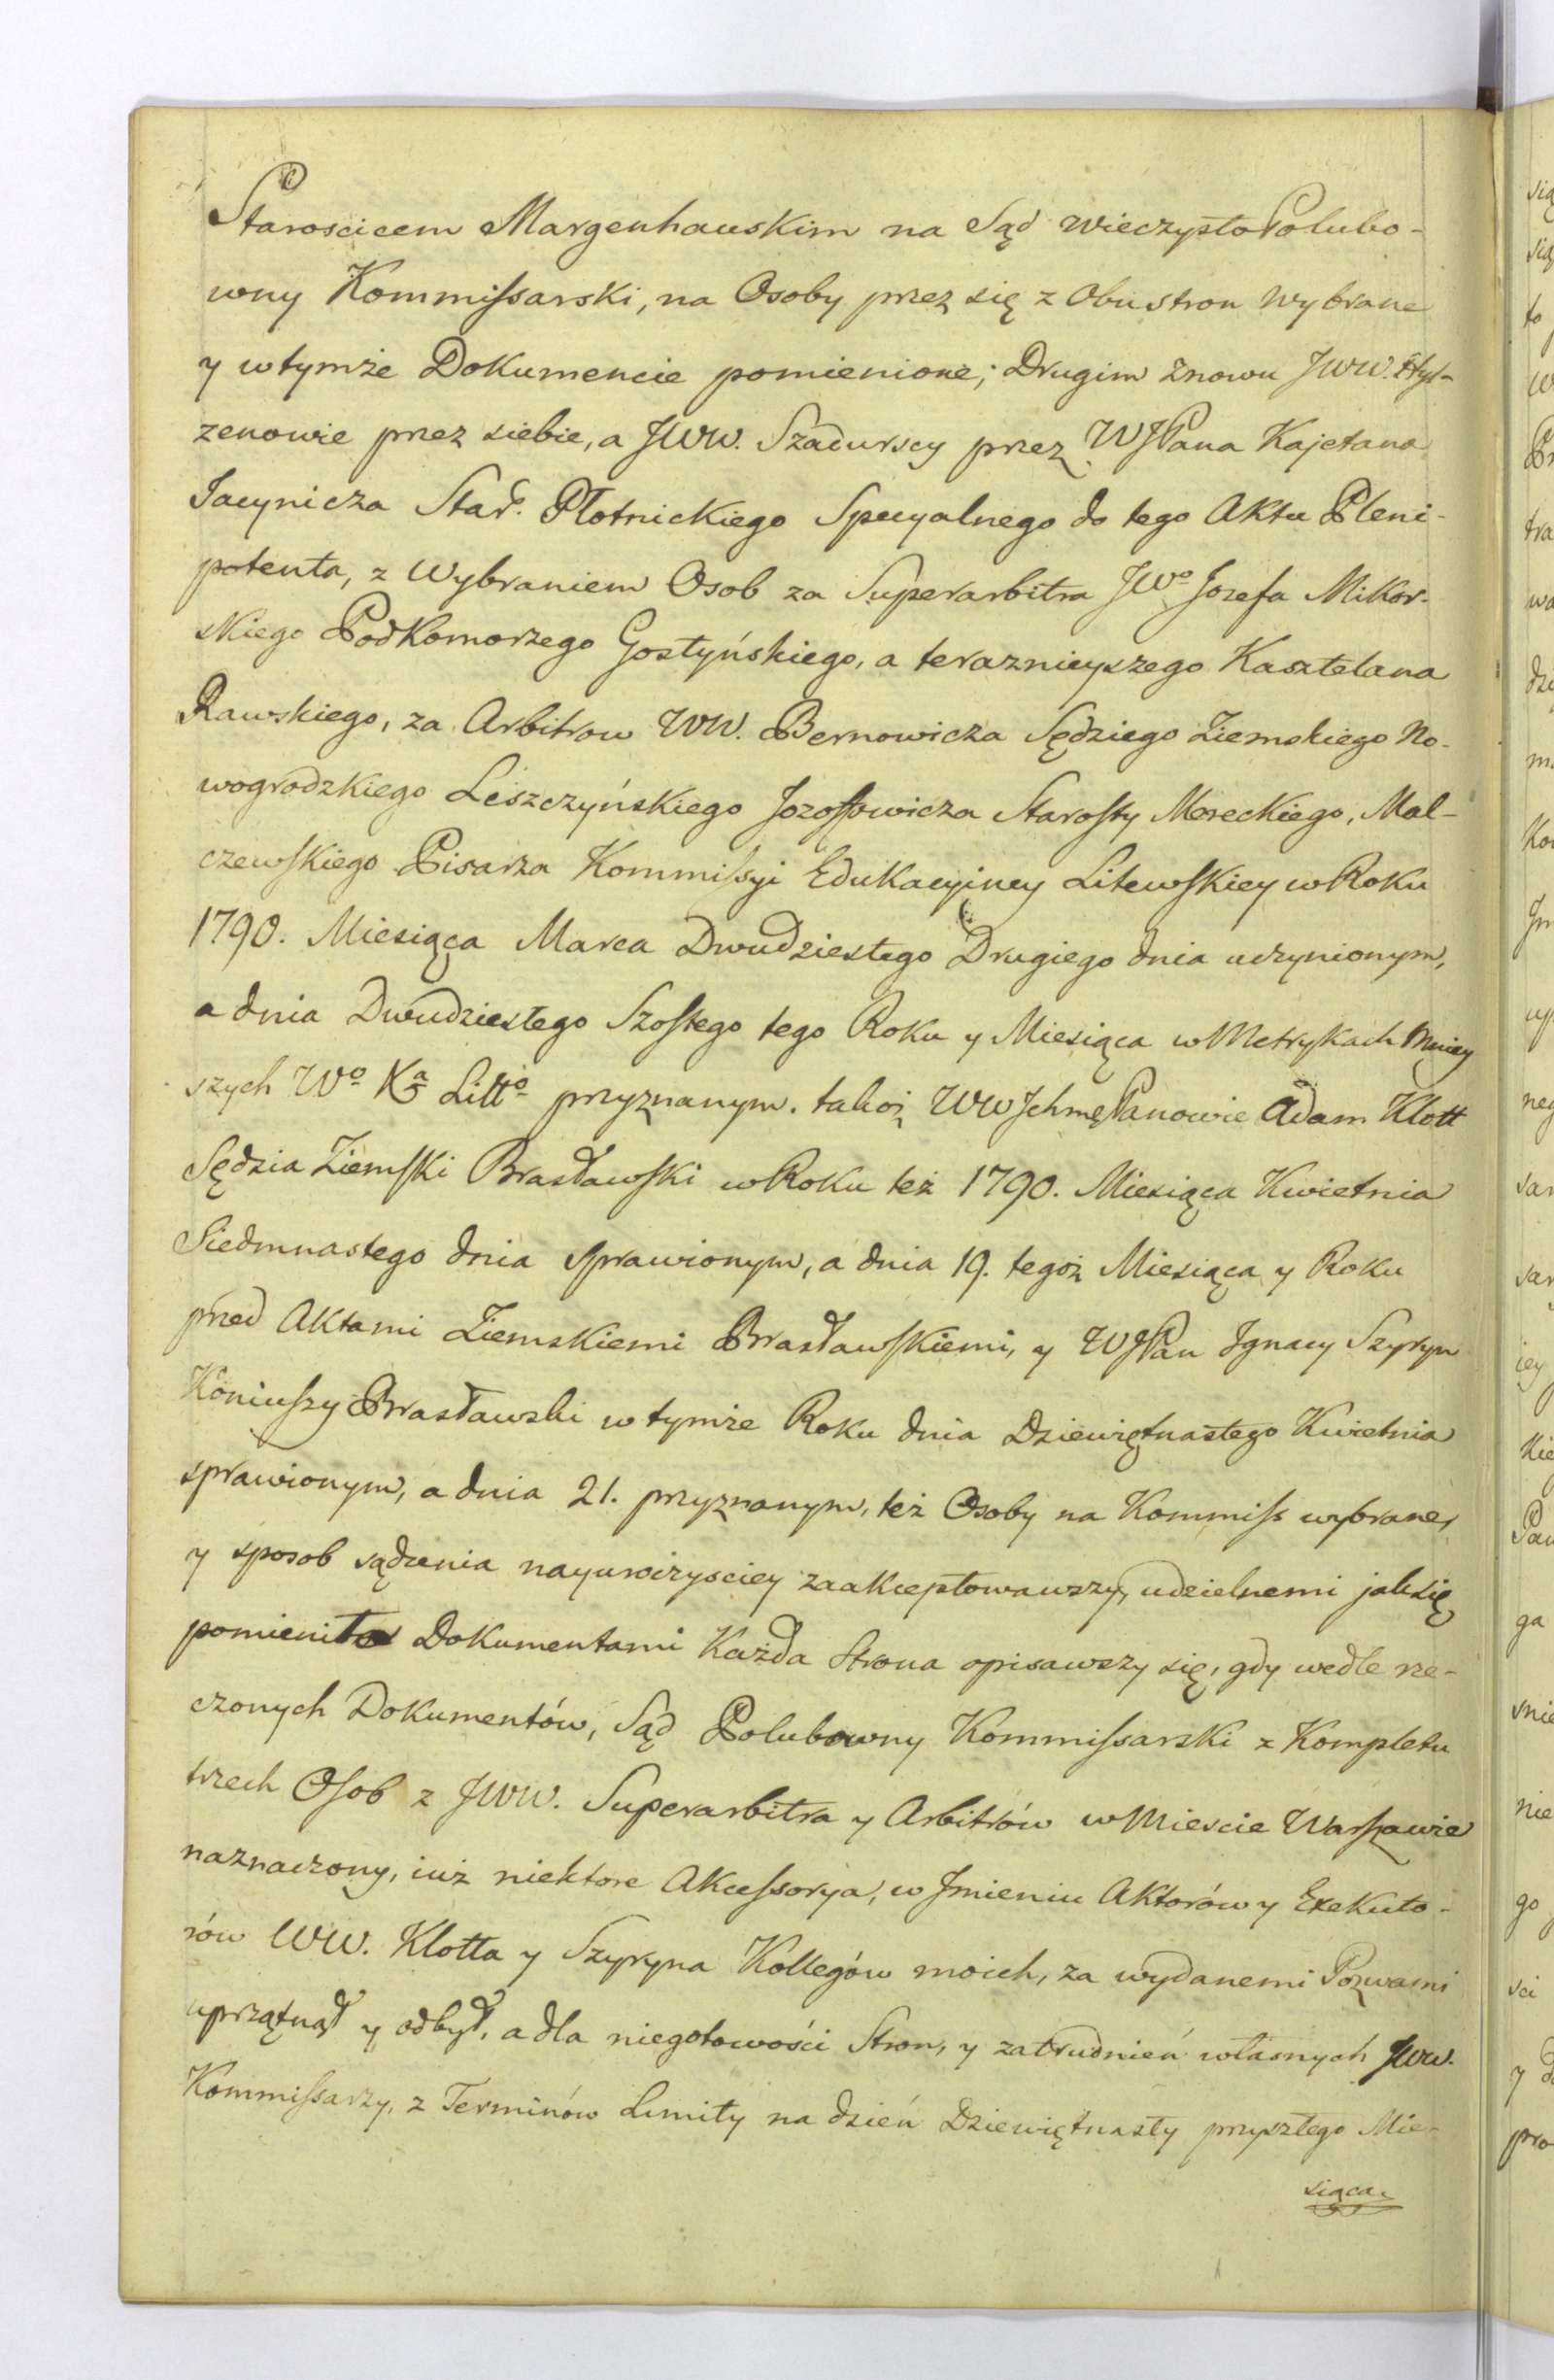 Staroscicem Margenhauskim na Sąd wieczysto Polubo-
wny Kommissarski, na Osoby przez się z Obu stron wybrane
y w tymże Dokumencie pomienione; Drugim znowu JWW. Hyl-
zenowie przez siebie, a JWW. Szadurscy przez WJPana Kajetana
Jacynicza Star. Płotnickiego Specyalnego do tego Aktu Pleni-
potenta, z Wybraniem Osob za Superarbitra JWo Jozefa Mikor-
skiego Podkomorzego Gostyńskiego, a teraznieyszego Kasztelana
Rawskiego, za Arbitrow WW. Bernowicza Sędziego Ziemskiego No-
wogrodzkiego Leszczyńskiego Jozofowicza Starosty Mereckiego, Mal-
czewskiego Pisarza Kommissyi Edukacyiney Litewskiey w Roku
1790. Miesiąca Marca Dwudziestego Drugiego dnia uczynionym,
a dnia Dwudziestego Szostego tego Roku y Miesiąca w Metrykach Mniey
szych Wo Ka Litto przyznanym. takoż WW Jchmę Panowie Adam Klott
Sędzia Ziemski Brasławski w Roku też 1790. Miesiąca Kwietnia
Siedmnastego dnia sprawionym, a dnia 19. tegoż Miesiąca y Roku
przed Aktami Ziemskiemi Brasławskiemi, y WJPan Ignacy Szyryn
Koniuszy Brasławski w tymże Roku dnia Dziewiętnastego Kwietnia
sprawionym, a dnia 21. przyznanym, też Osoby na Kommiss wybrane,
y sposob sądzenia nayuroczyściey zaakceptowawszy, udzielnemi jak się
pomieniło Dokumentami Każda Strona opisawszy się, gdy wedle rze-
czonych Dokumentów, Sąd Polubowny Kommissarski z Kompletu
trzech Osob z JWW. Superarbitra y Arbitrów w Mieście Warszawie
naznaczony, iuż niektore Akcessorya, w Jmieniu Aktorów y Exekuto-
rów WW. Klotta y Szyryna Kollegów moich, za wydanemi Pozwami
uprzątnął y odbył, a dla niegotowości Stron, y zatrudnień własnych JWW.
Kommissarzy, z Terminów Limity na dzień Dziewiętnasty przyszłego Mie-
siąca